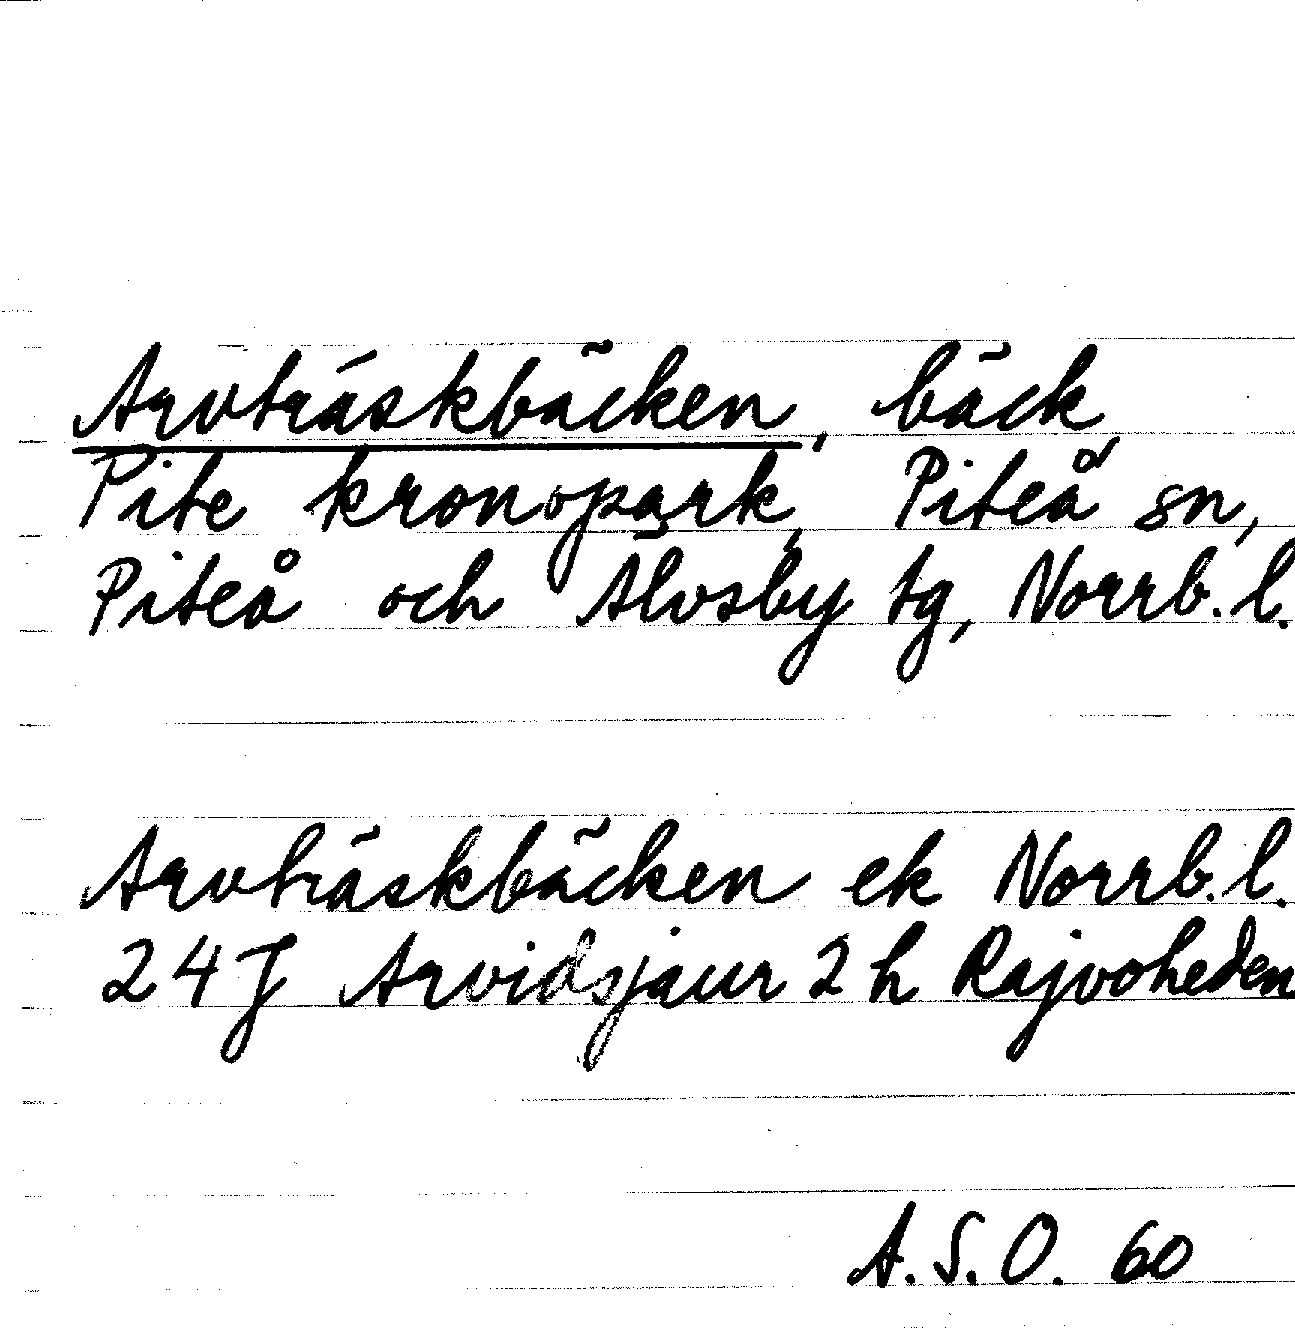 Arvträskbäcken, bäck,
Pite kronopark, Piteå sn,
Piteå och Älvsby tg, Norrb. l.
Arvträskbäcken ek Norrb. l.
24J Arvidsjaur 2h Rajvoheden
A.S.O. 60